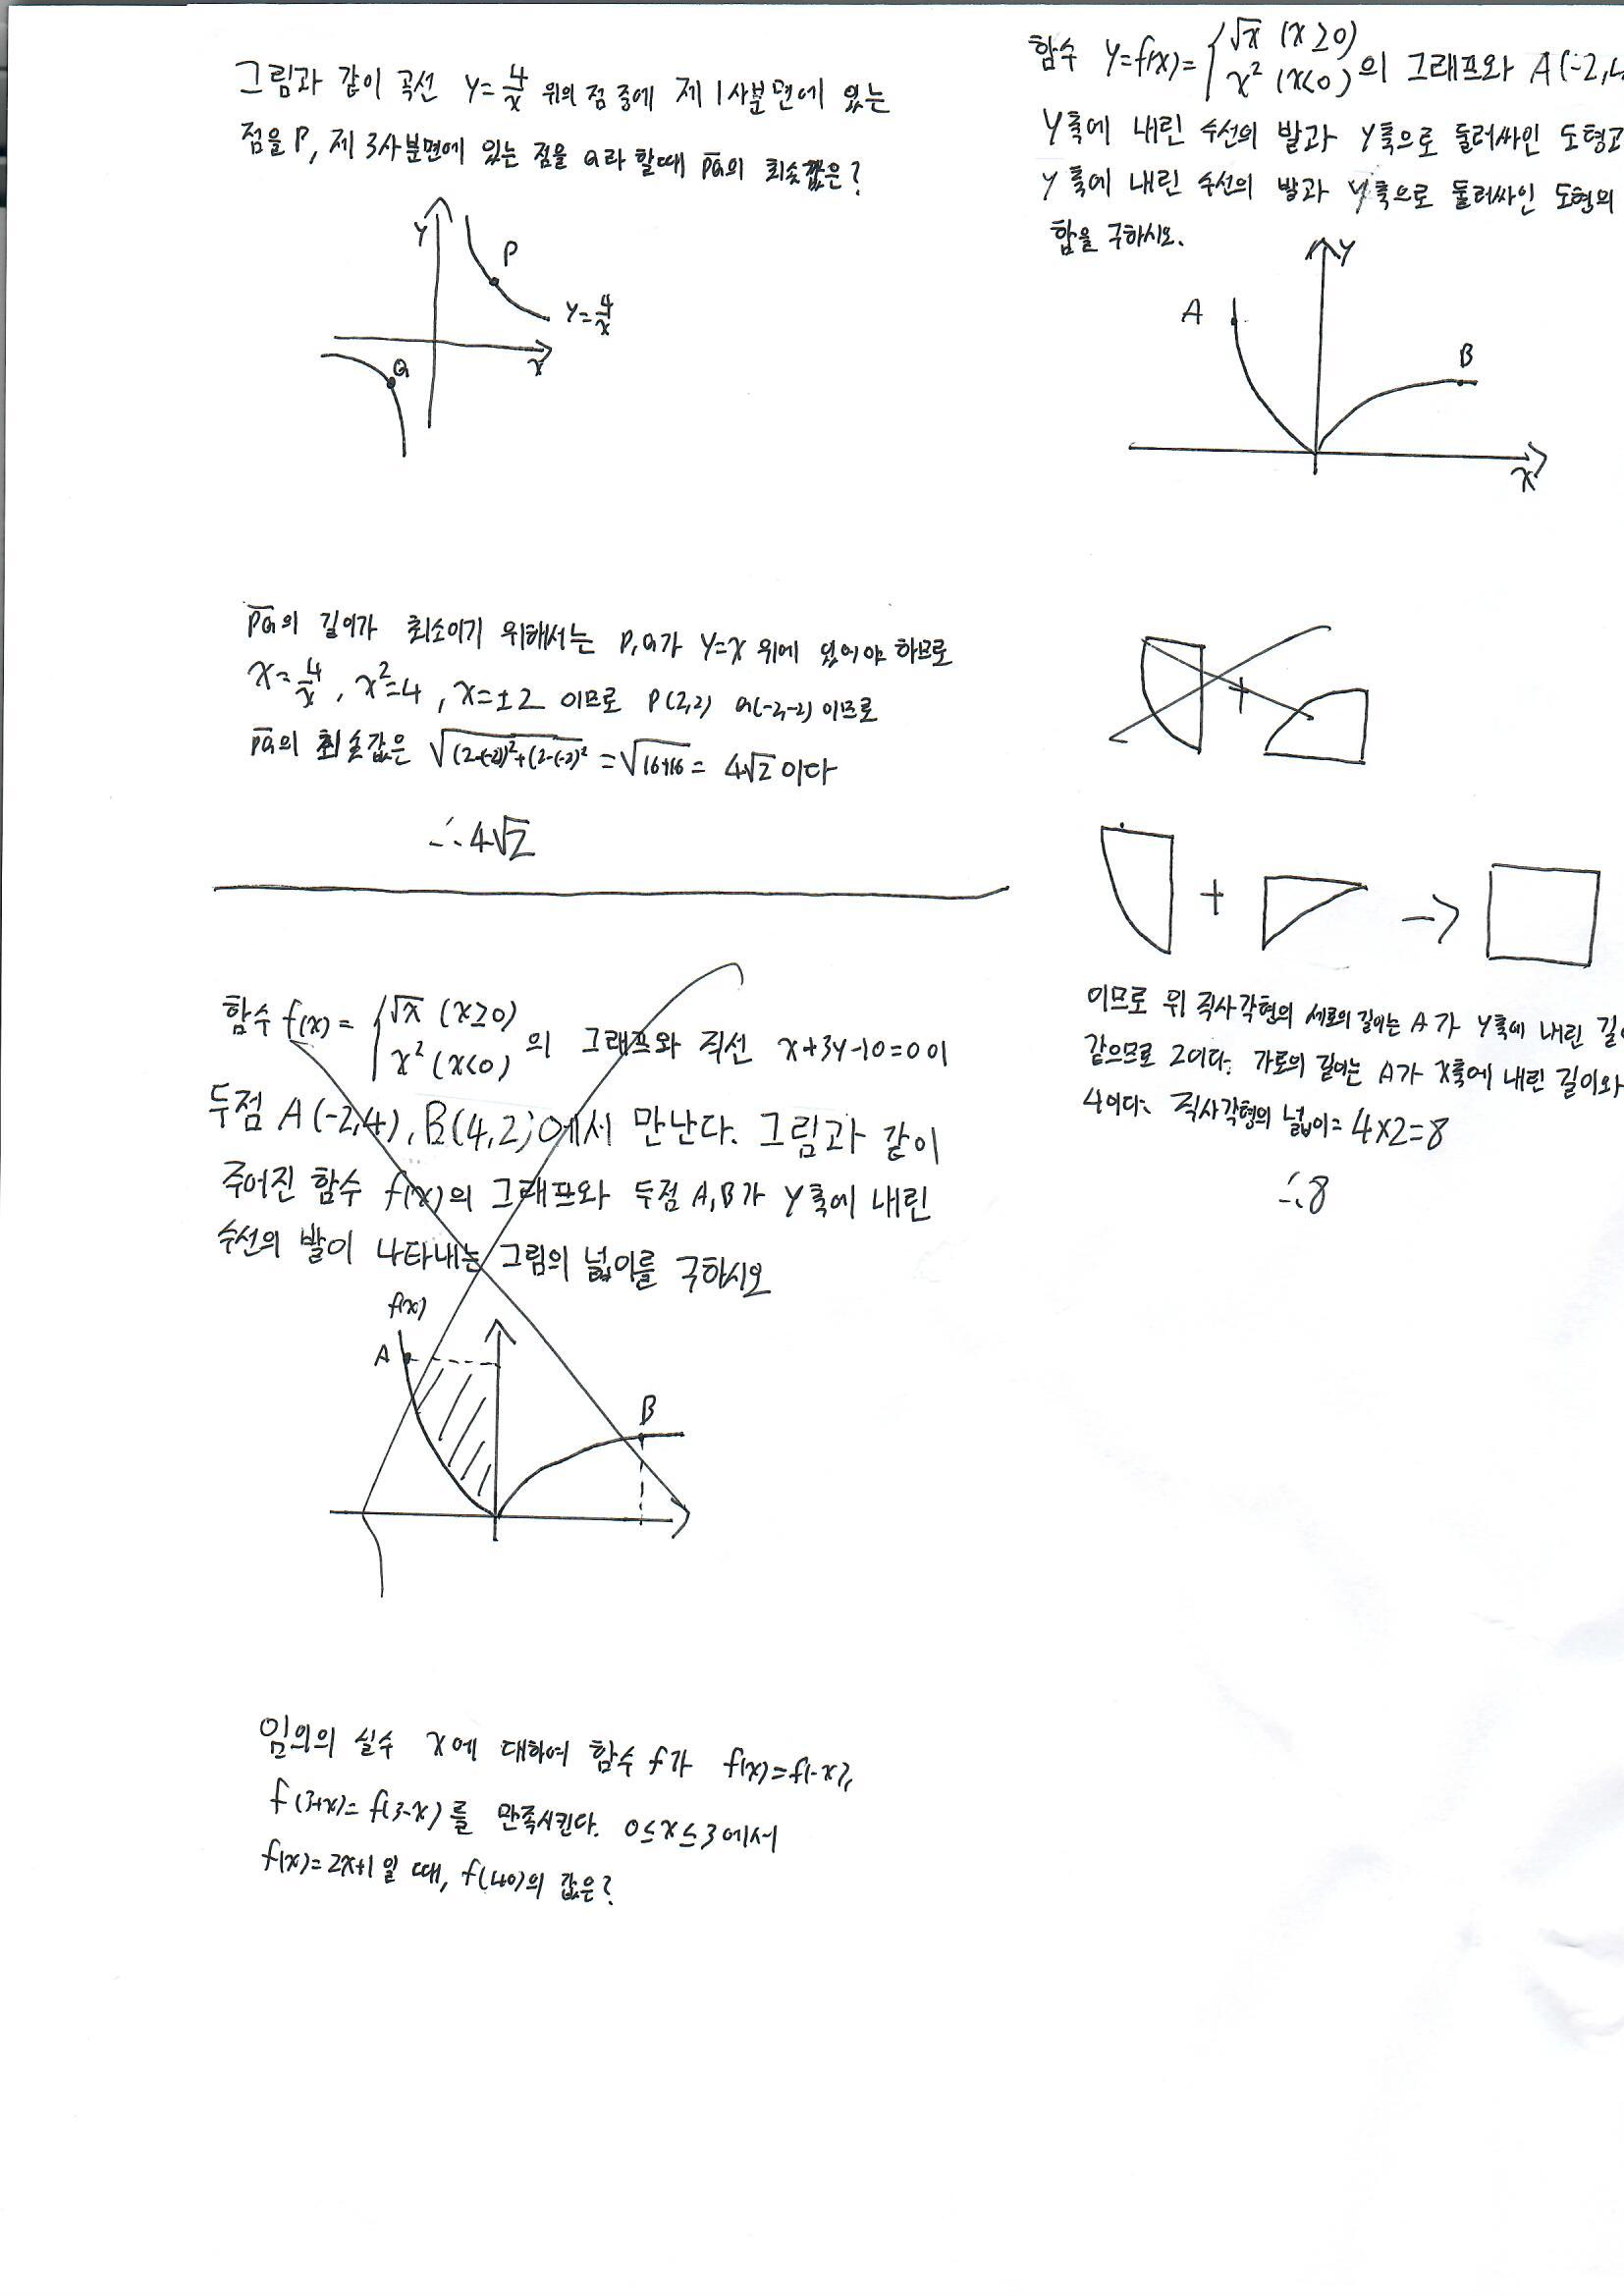 그림과 같이 곡선 y=4/x 위의 점 중에 제 1사분면에 있는
점을 P, 제 3사분면에 있는 점을 Q라 할때 PQ의 최솟값은?
y
P
y=4/x
x
Q
PQ의 길이가 최소이기 위해서는 P,Q가 y=x 위에 있어야 하므로
x=4/x, x²=4, x=±2 이므로 P(2,2) Q(-2,-2) 이므로
PQ의 최솟값은 √(2-(-2))²+(2-(-2)² = √16+16 = 4√2 이다
∴ 4√2
함수 f(x)= { √x (x≥0)
x² (x<0) 의 그래프와 직선 x+3y-10=0이
두점 A(-2,4), B(4,2)에서 만난다. 그림과 같이
주어진 함수 f(x)의 그래프와 두점 A,B가 y축에 내린
수선의 발이 나타내는 그림의 넓이를 구하시오
f(x)
A
B
임의의 실수 x에 대하여 함수 f가 f(x)=f(-x),
f(3+x)=f(3-x)를 만족시킨다. 0≤x≤3에서
f(x)=2x+1일 때, f(40)의 값은?
함수 y=f(x)= { √x (x≥0)
x² (x<0) 의 그래프와 A(-2,4
y축에 내린 수선의 발과 y축으로 둘러싸인 도형과
y축에 내린 수선의 발과 y축으로 둘러싸인 도형의
합을 구하시오.
y
A
B
x
+
+ →
이므로 위 직사각형의 세로의 길이는 A가 y축에 내린
같으므로 2이다. 가로의 길이는 A가 x축에 내린 길이와
4이다. 직사각형의 넓이= 4×2=8
∴ 8